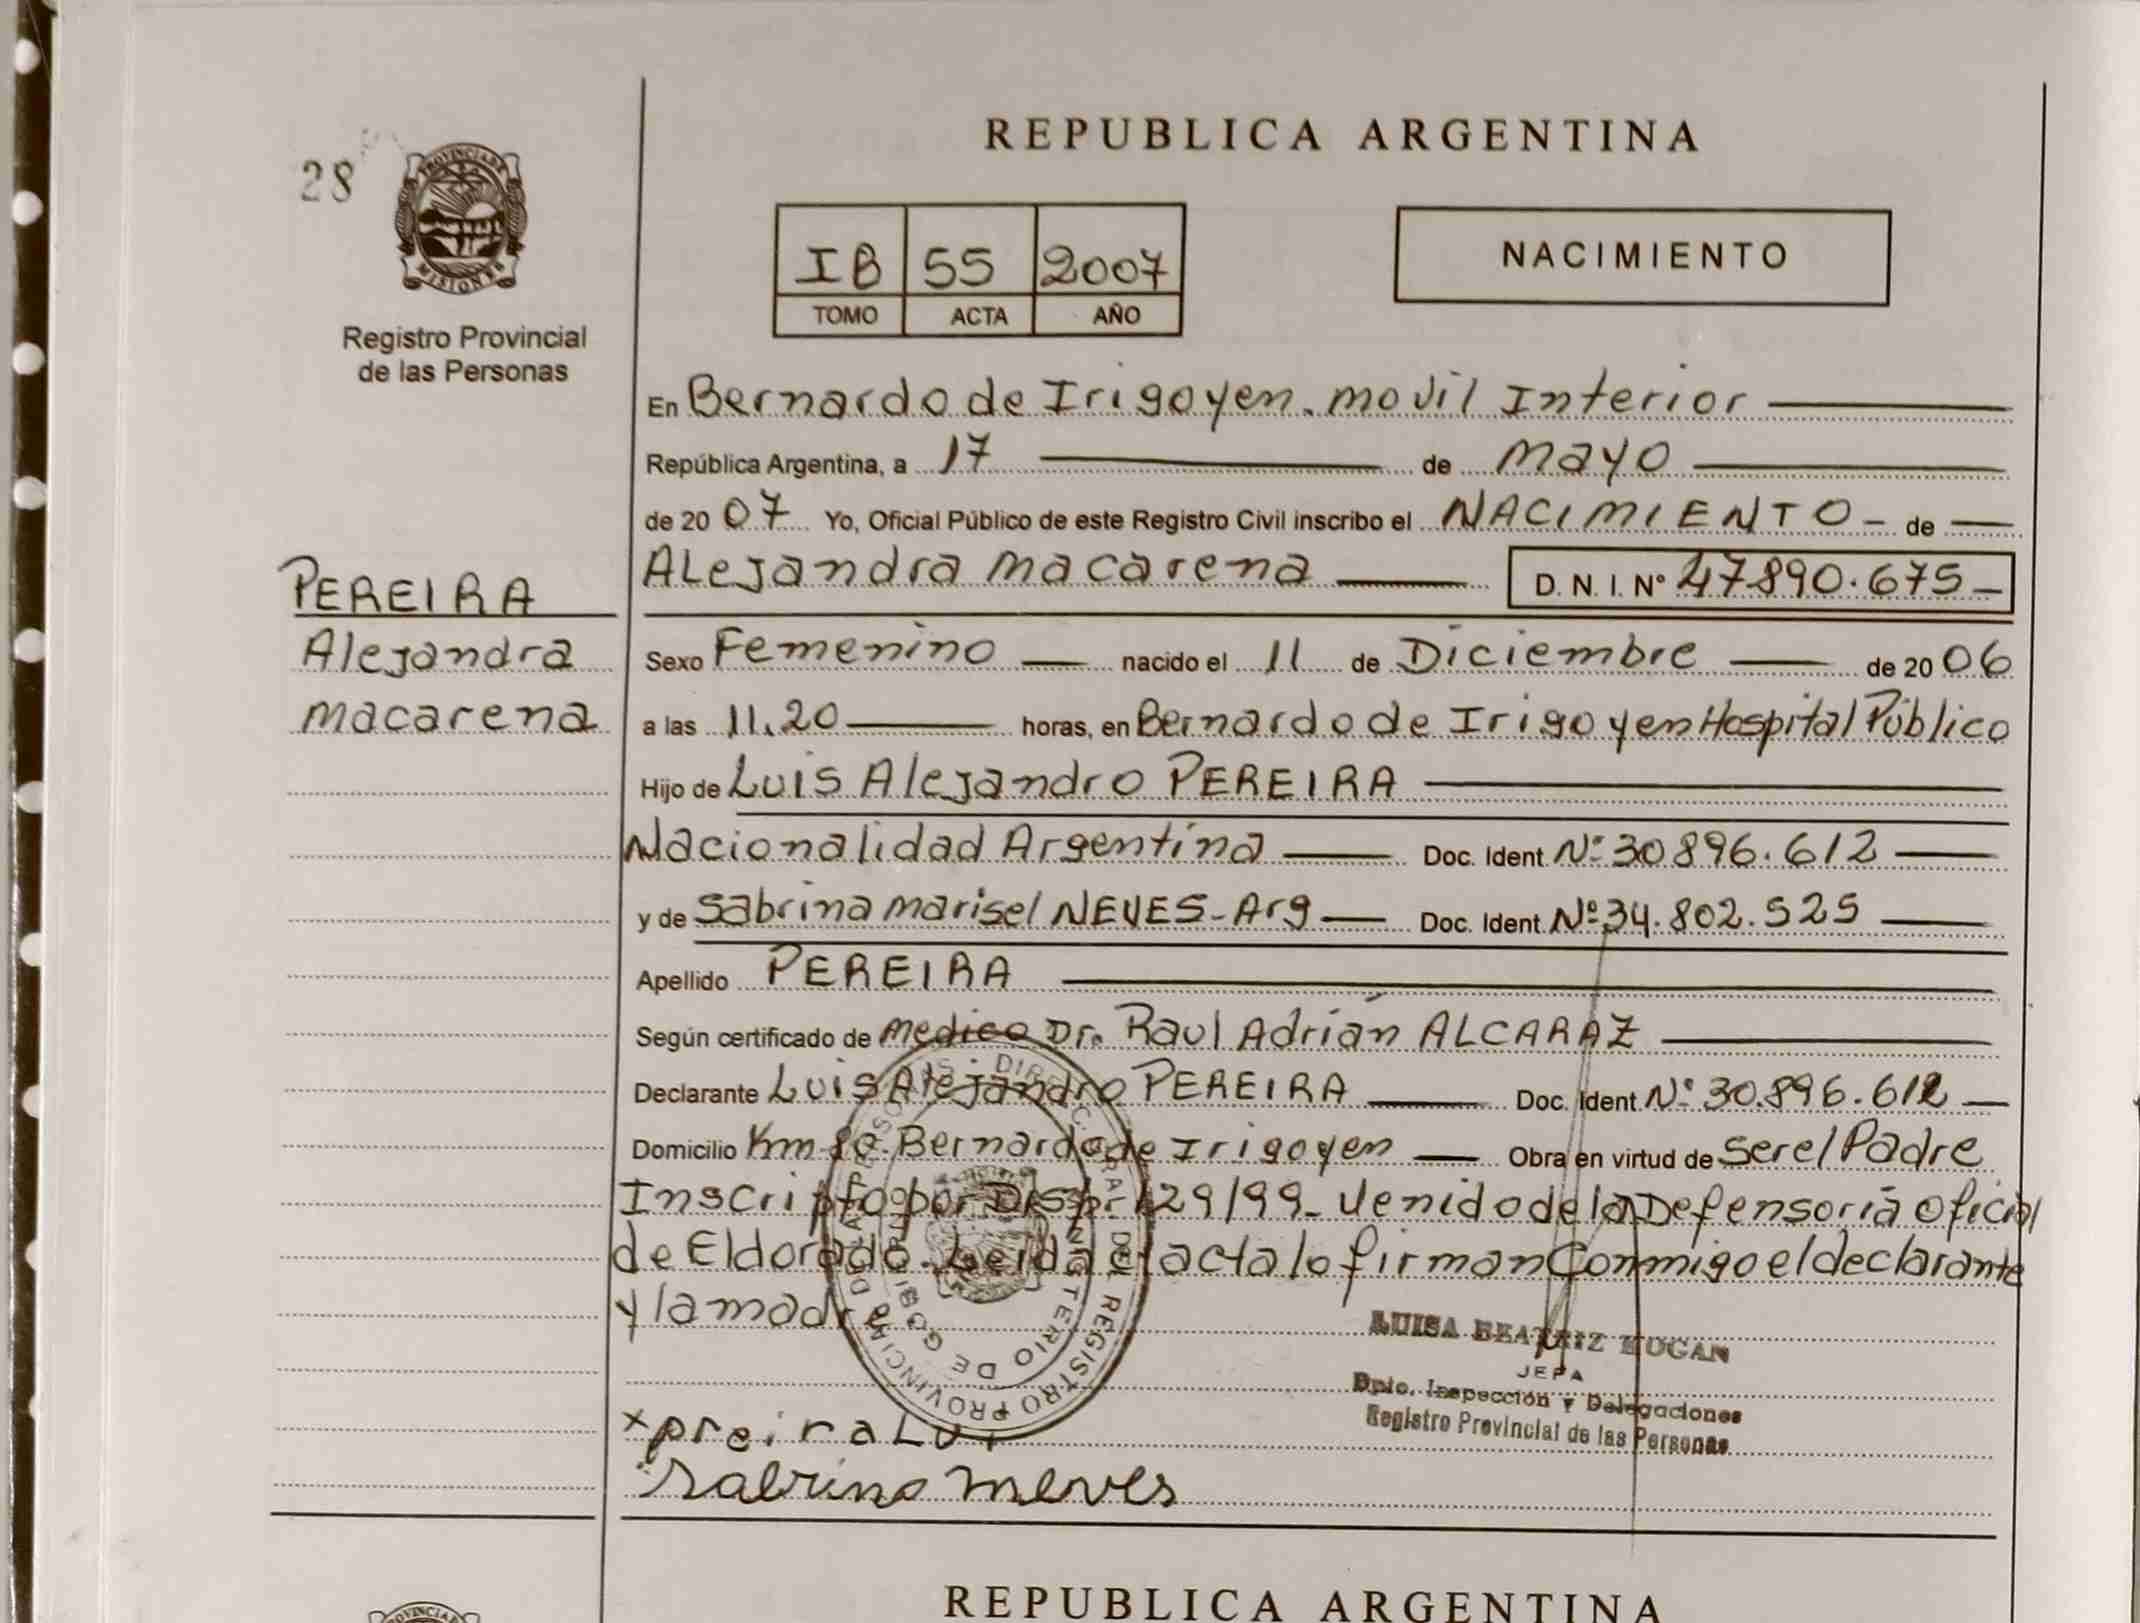 REPUBLICA ARGENTINA
28
PROVINCIA DE
MISIONES
Registro Provincial
de las Personas
IB 55 2007
TOMO ACTA AÑO
NACIMIENTO
En Bernardo de Irigoyen. movil Interior
República Argentina, a 17 de mayo
de 2007 Yo, Oficial Público de este Registro Civil inscribo el NACIMIENTO - de
Alejandra macarena D. N. I. Nº 47890.675-
PEREIRA
Alejandra
macarena
Sexo Femenino nacido el 11 de Diciembre de 2006
a las 11.20 horas, en Bernardo de Irigoyen Hospital Público
Hijo de Luis Alejandro PEREIRA
Nacionalidad Argentina Doc. Ident Nº 30896.612
y de Sabrina marisel NEVES - Arg Doc. Ident. Nº 34.802.525
Apellido PEREIRA
Según certificado de medico Dr. Raul Adrián ALCARAZ
Declarante Luis Alejandro PEREIRA Doc. Ident Nº 30.896.612
Domicilio Km Bernardo de Irigoyen Obra en virtud de ser el Padre
Inscripto por Disp. 129/99 - Venido de la Defensoria Oficial
de Eldorado. Leida el acta lo firman Conmigo el declarante
y la madre
LUISA BEATRIZ
JEFA
Dpto. Inspección y Delegaciones
Registro Provincial de las Personas
x preira Lui
Sabrina neves
REGISTRO PROVINCIAL DE LAS PERSONAS
MINISTERIO DE GOBIERNO
REPUBLICA ARGENTINA